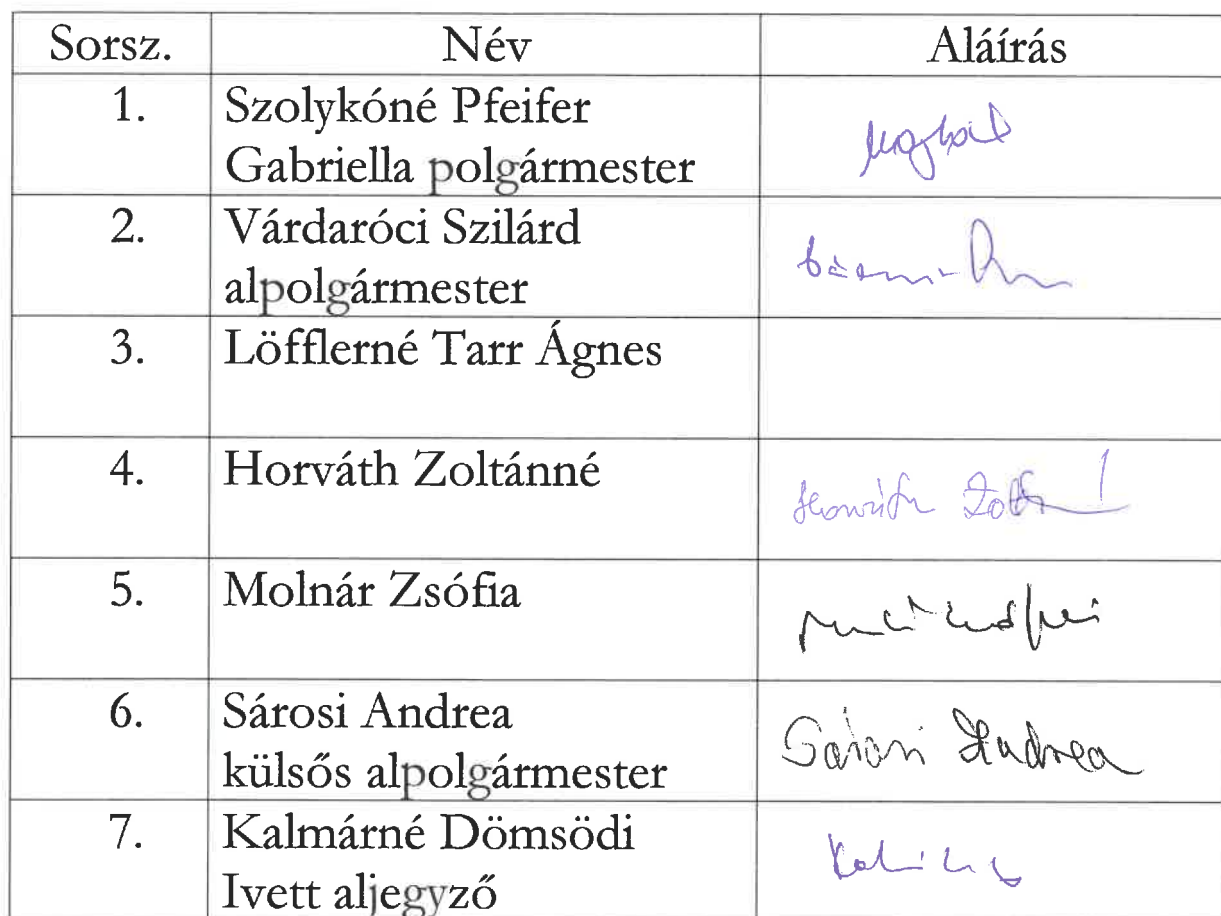 Sorsz. Név Aláírás
1. Szolykóné Pfeifer
Gabriella polgármester
2. Várdaróci Szilárd
alpolgármester
3. Löfflerné Tarr Ágnes
4. Horváth Zoltánné
Horváth Zoltn
5. Molnár Zsófia
6. Sárosi Andrea
külsős alpolgármester
Sárosi Andrea
7. Kalmárné Dömsödi
Ivett aljegyző